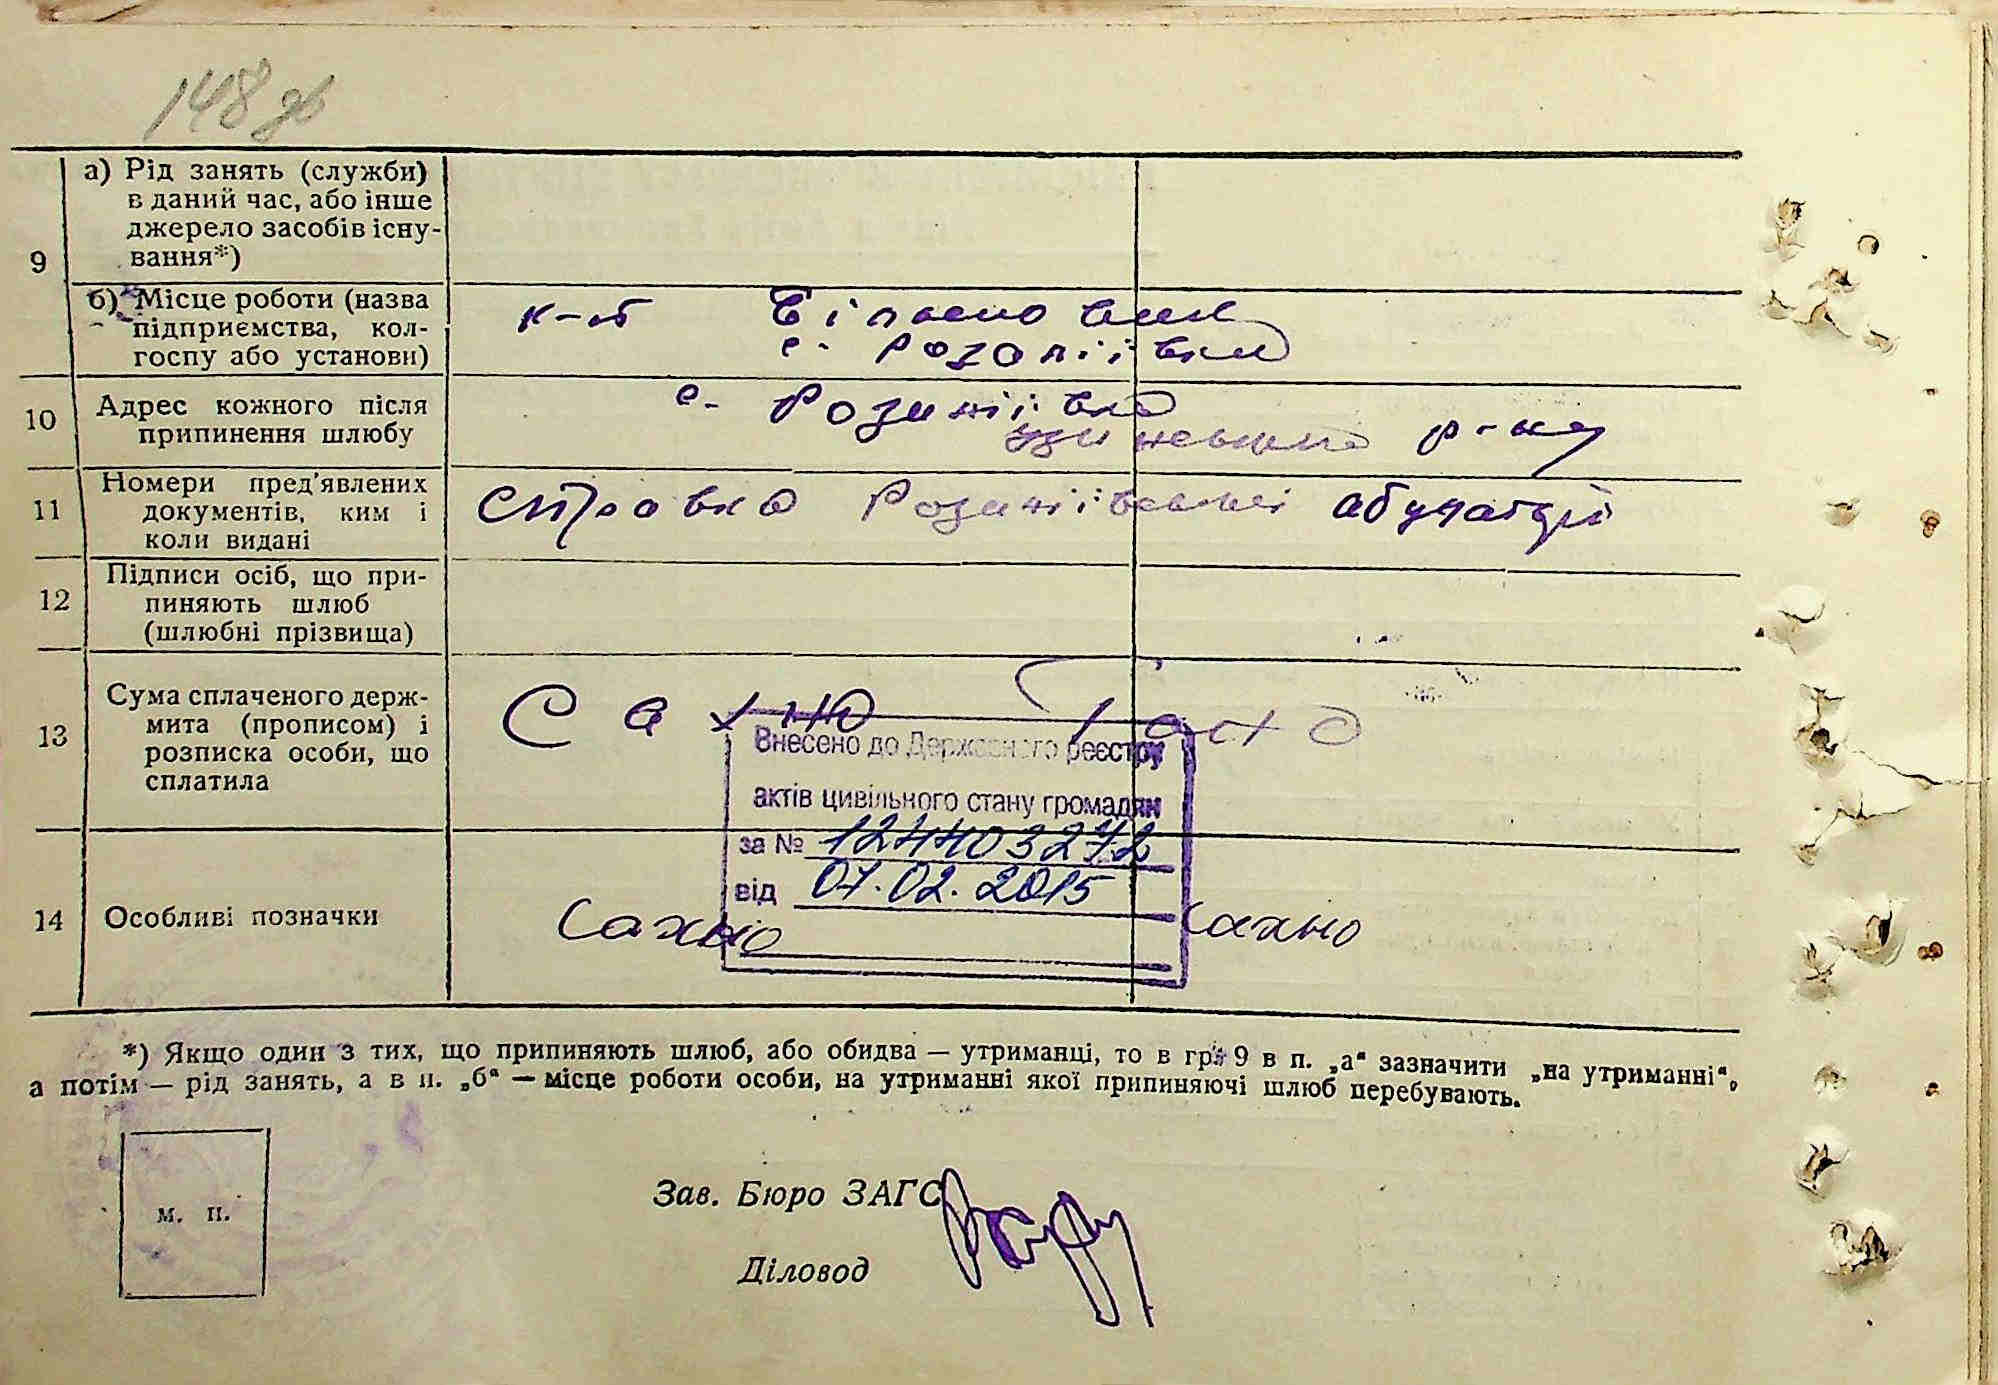 148 зв
9
а) Рід занять (служби)
в даний час, або інше
джерело засобів існу-
вання*)
б) Місце роботи (назва
підприємства, кол-
госпу або установи)
к-т
с.
10
Адрес кожного після
припинення шлюбу
с. р-ну
11
Номери пред'явлених
документів, ким і
коли видані
справка
12
Підписи осіб, що при-
пиняють шлюб
(шлюбні прізвища)
13
Сума сплаченого держ-
мита (прописом) і
розписка особи, що
сплатила
Сахно
Внесено до Державного реєстру
актів цивільного стану громадян
за №
від 07.02.2015
14
Особливі позначки
Сахно Сахно
*) Якщо один з тих, що припиняють шлюб, або обидва — утриманці, то в гр. 9 в п. „а“ зазначити „на утриманні“,
а потім — рід занять, а в п. „б“ — місце роботи особи, на утриманні якої припиняючі шлюб перебувають.
м. п.
Зав. Бюро ЗАГС
Діловод